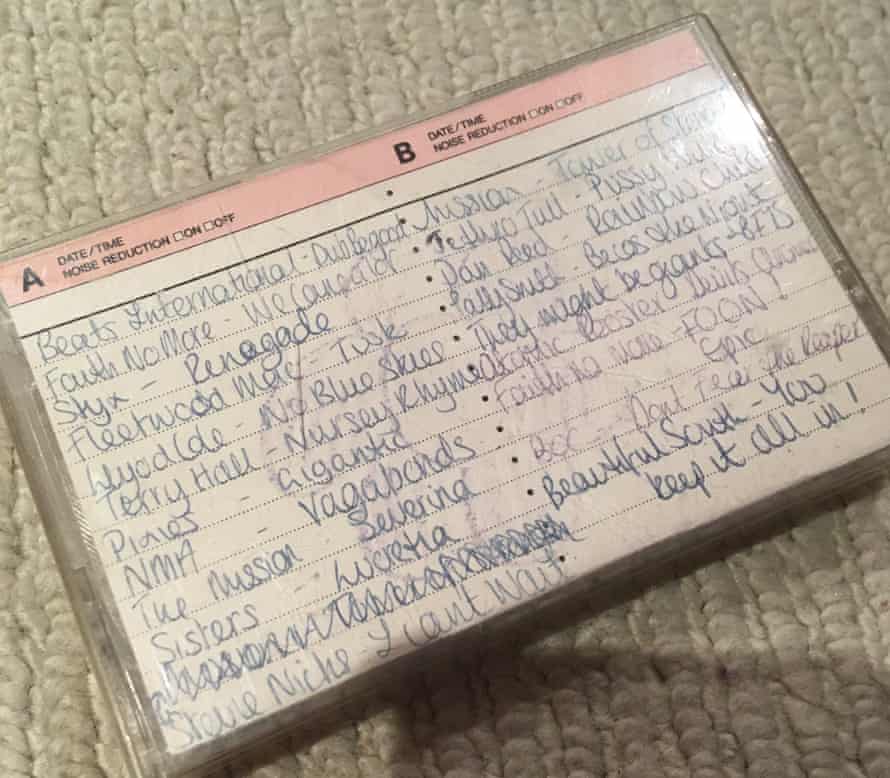 A
DATE/TIME
NOISE REDUCTION □ON □OFF
Beats International - Dub be good
Faith No More - We care a lot
Styx - Renegade
Fleetwood Mac - Tusk
Lloyd Cole - No Blue Skies
Terry Hall - Nursey Rhyme
Pixies - Gigantic
NMA - Vagabonds
The Mission - Severina
Sisters - Lucretia
Stevie Nicks - I cant wait
B
DATE/TIME
NOISE REDUCTION □ON □OFF
Mission - Tower of
Jethro Tull - Pussy
Dan Reed - Rainbow Child
Patti Smith - Becos the Night
They might be giants -
Atomic Rooster Devils
Faith no more -
Epic
BOC - Dont Fear the Reaper
Beautiful South - You
keep it all in!